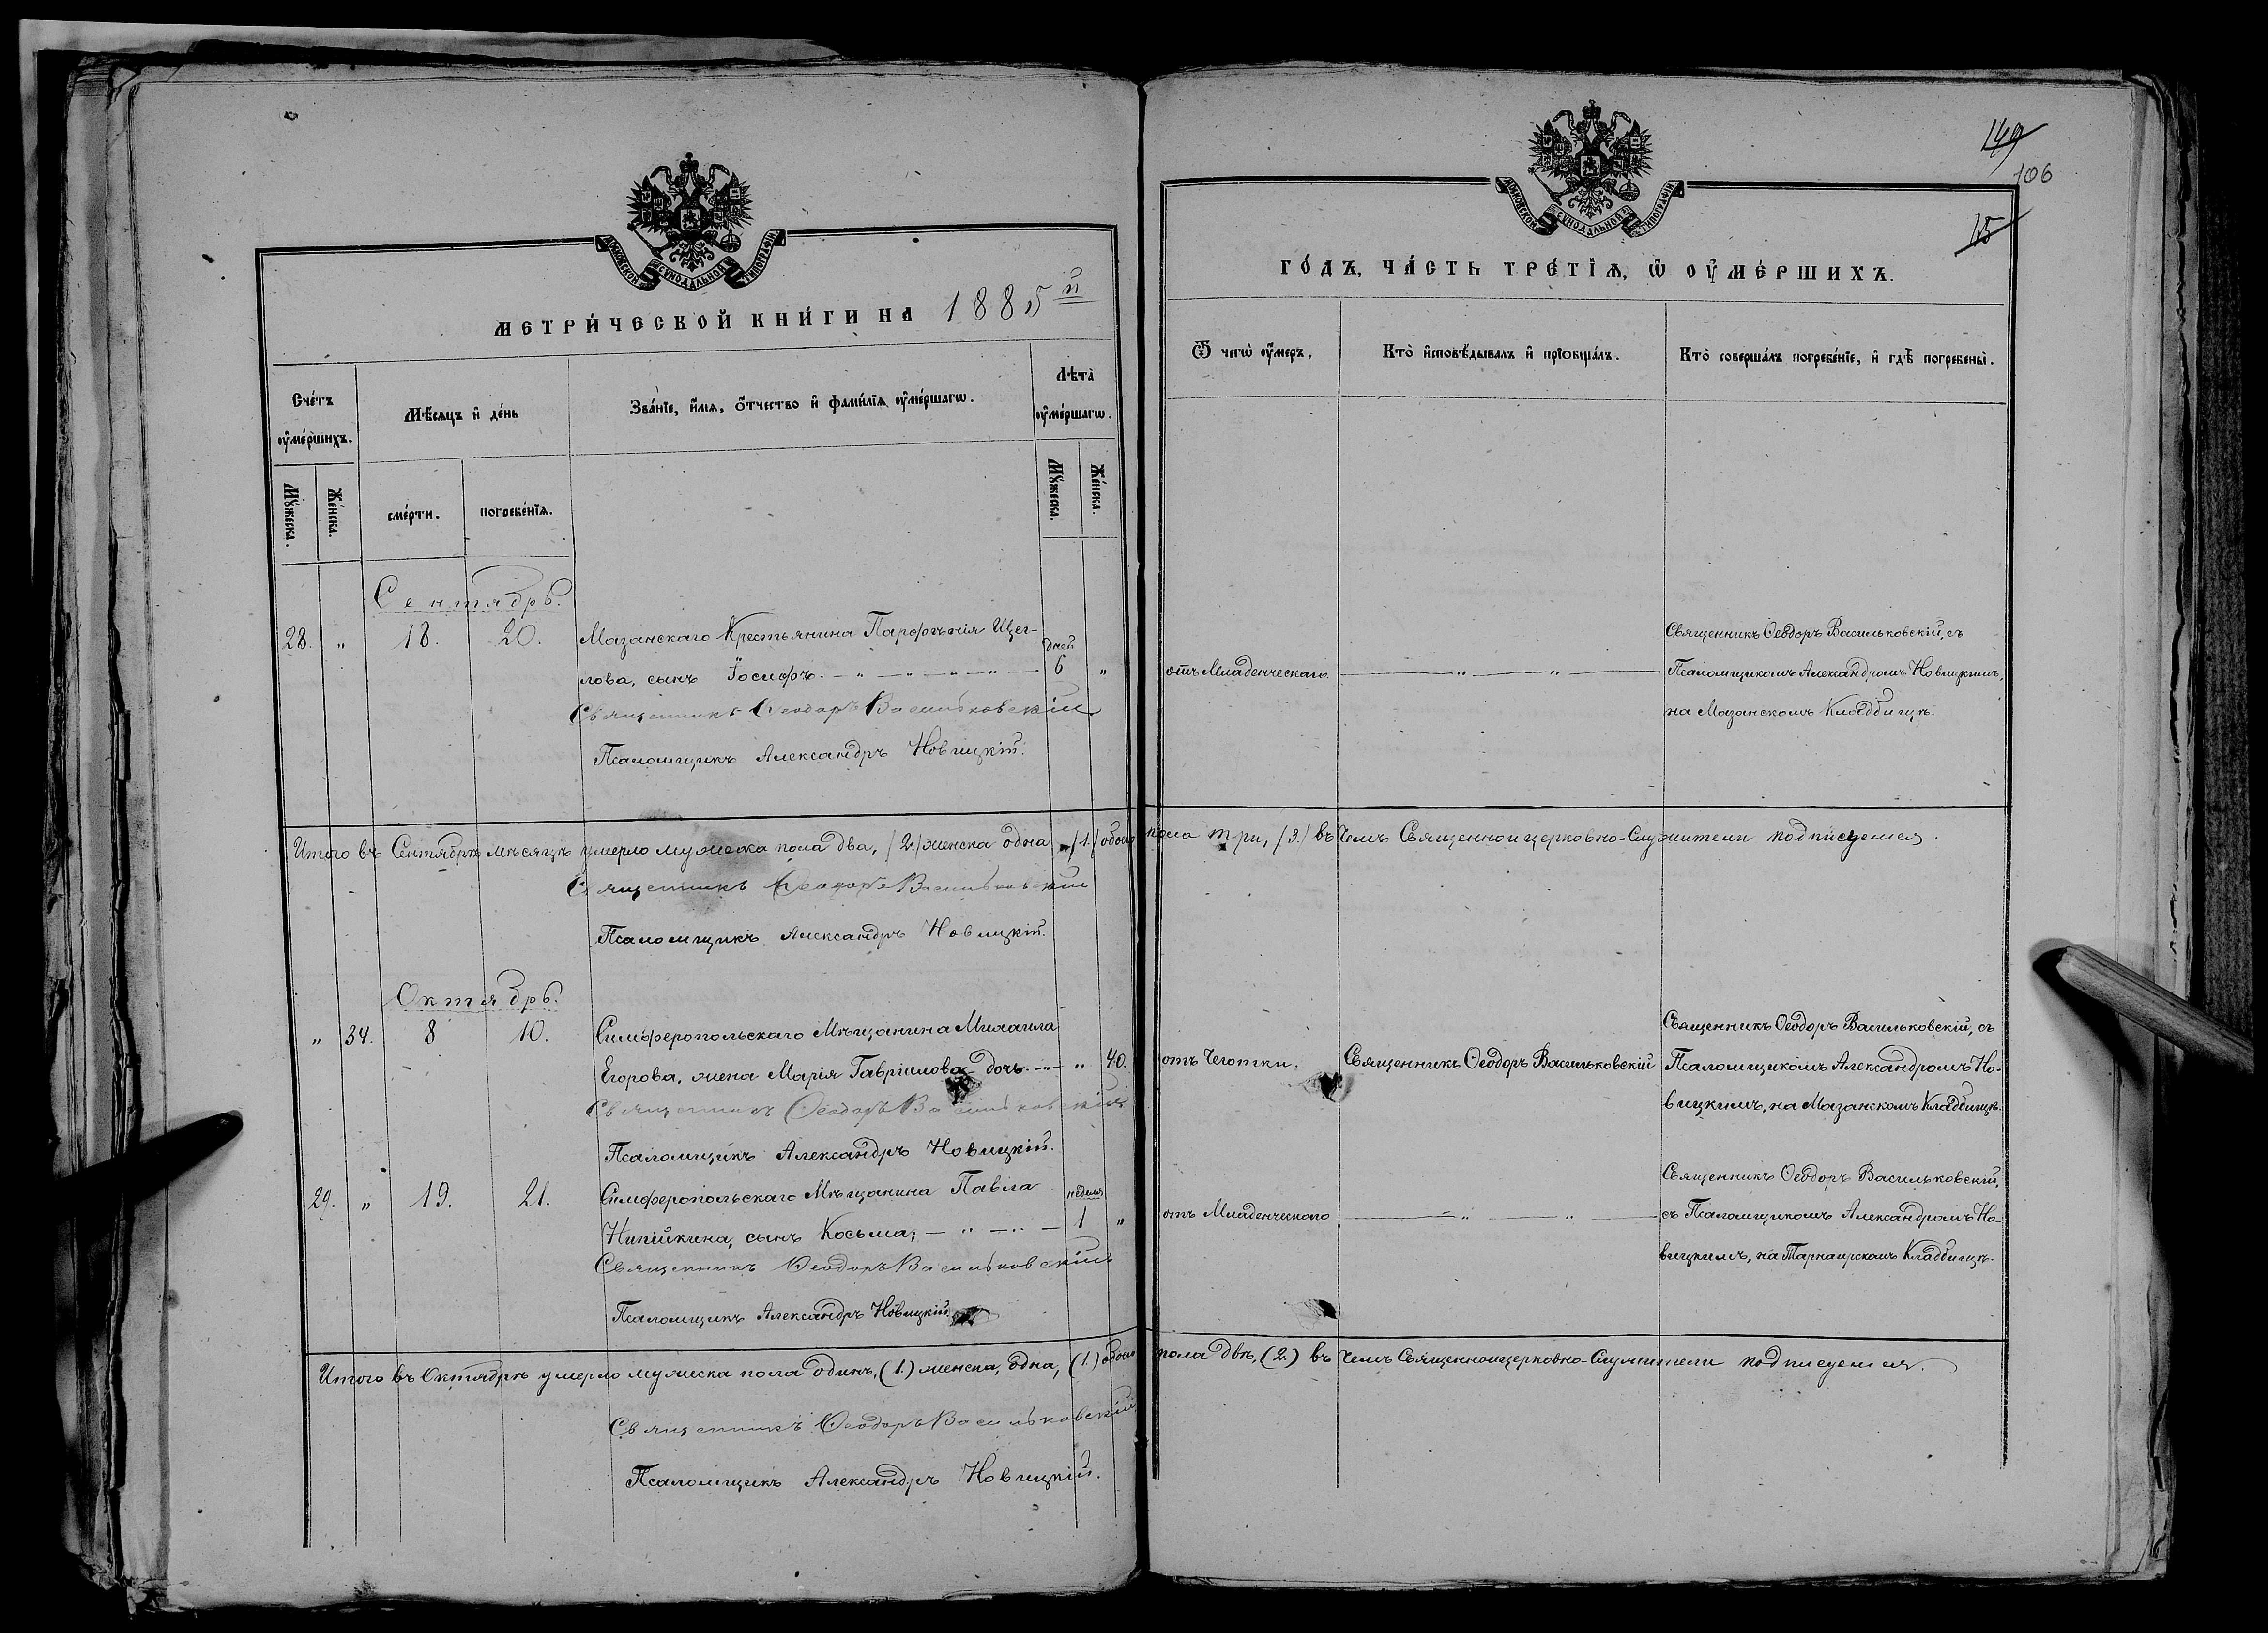 МОСКОВСКОЙ СѴНОДАЛЬНОЙ ТИПОГРАФІИ
МЕТРИ́ЧЕСКОЙ КНИ́ГИ НА 1885й
Сче́тъ ᲂу҆ме́ршихъ.
Мꙋ́жеска.
Же́нска.
Мѣ́сяцъ и҆ де́нь
сме́рти.
погребе́нїѧ.
Зва́нїе, и҆́мѧ, ѻ҆́тчество и҆ фами́лїѧ ᲂу҆ме́ршагѡ.
Лѣ́та ᲂу҆ме́ршагѡ.
Мꙋ́жеска.
Же́нска.
Сентябрь.
28. „ 18. 20. Мазанскаго Крестьянина Парфенія Щег- дней
лова, сынъ Іосифъ. — „ — „ — „ — „ — 6 „
Священникъ Ѳеодоръ Васильковскій
Псаломщикъ Александръ Новицкій.
Итого въ Сентябрѣ мѣсяцѣ умерло мужеска пола два, /2./ женска одна /1./ обоего
Священникъ Ѳеодоръ Васильковскій
Псаломщикъ Александръ Новицкій.
Октябрь.
„ 34. 8 10. Симферопольскаго Мѣщанина Михаила
Егорова, жена Марія Гавріилова дочь. — „ — „ 40.
Священникъ Ѳеодоръ Васильковскій
Псаломщикъ Александръ Новицкій.
29. „ 19. 21. Симферопольскаго Мѣщанина Павла недѣля
сынъ Косьма; — „ — „ — 1 „
Священникъ Ѳеодоръ Васильковскій
Псаломщикъ Александръ Новицкій.
Итого въ Октябрѣ умерло мужеска пола одинъ, (1.) женска, одна, (1.) обоего
Священникъ Ѳеодоръ Васильковскій.
Псаломщикъ Александръ Новицкій.
149
106
15
МОСКОВСКОЙ СѴНОДАЛЬНОЙ ТИПОГРАФІИ
ГО́ДЪ, ЧА́СТЬ ТРЕ́ТІѦ, Ѡ҆ ОУ҆МЕ́РШИХЪ.
Ѿ чегѡ̀ ᲂу҆́меръ.
Кто̀ и҆сповѣ́дывалъ и҆ прїѡбща́лъ.
Кто̀ соверша́лъ погребе́нїе, и҆ гдѣ̀ погребены̀.
Священникъ Ѳеодоръ Васильковскій, съ
отъ Младенческаго. — „ — „ — Псаломщикомъ Александромъ Новицкимъ,
на Мазанскомъ Кладбищѣ.
пола три, /3./ въ чемъ Священноицерковно-Служители подписуемся.
Священникъ Ѳеодоръ Васильковскій, съ
отъ Чеготки. Священникъ Ѳеодоръ Васильковскій Псаломщикомъ Александромъ Но-
вицкимъ, на Мазанскомъ Кладбищѣ.
Священникъ Ѳеодоръ Васильковскій,
отъ Младенческаго — „ — „ — съ Псаломщикомъ Александромъ Но-
вицкимъ, на Тарнаирскомъ Кладбищѣ.
пола двѣ, (2.) въ чемъ Священноицерковно-Служители подписуемся.